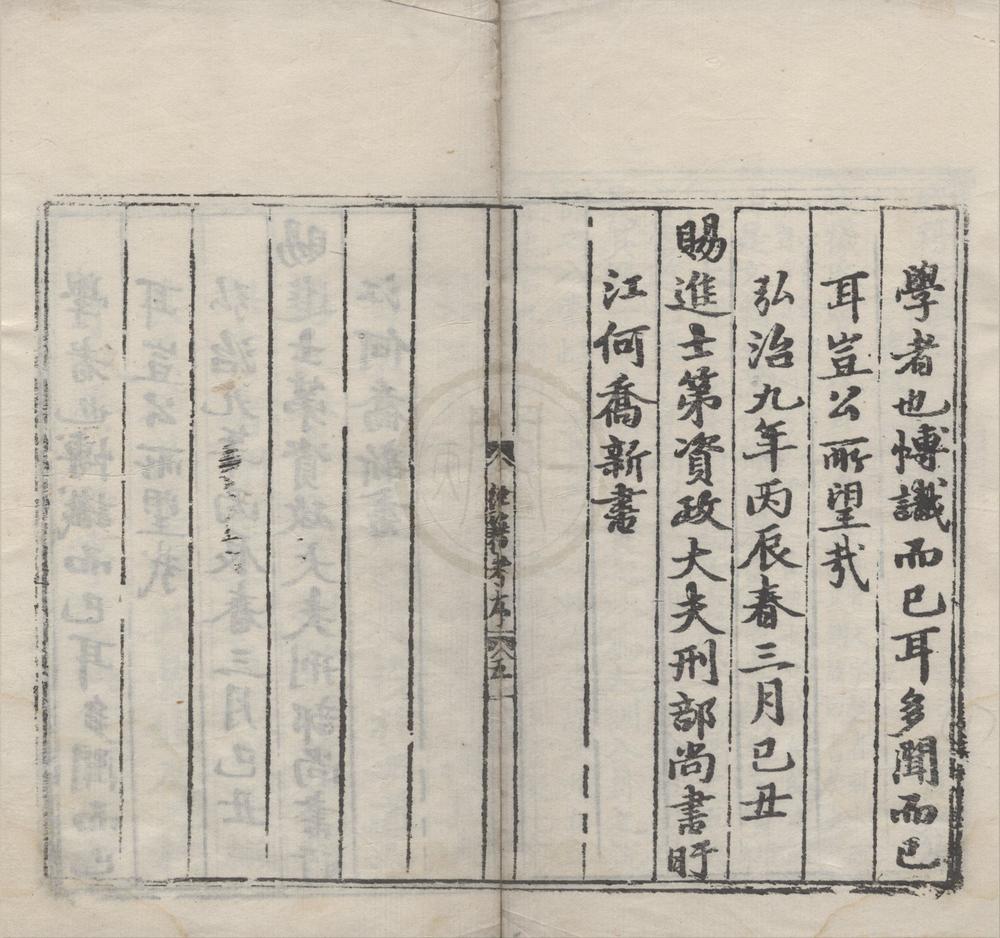 學者也愽識而已耳多聞而已
耳豈公所望㦲
弘治九年丙辰春三月己丑
賜進士第資政大夫刑部尚書盱
江何喬新書
經籍考序
五